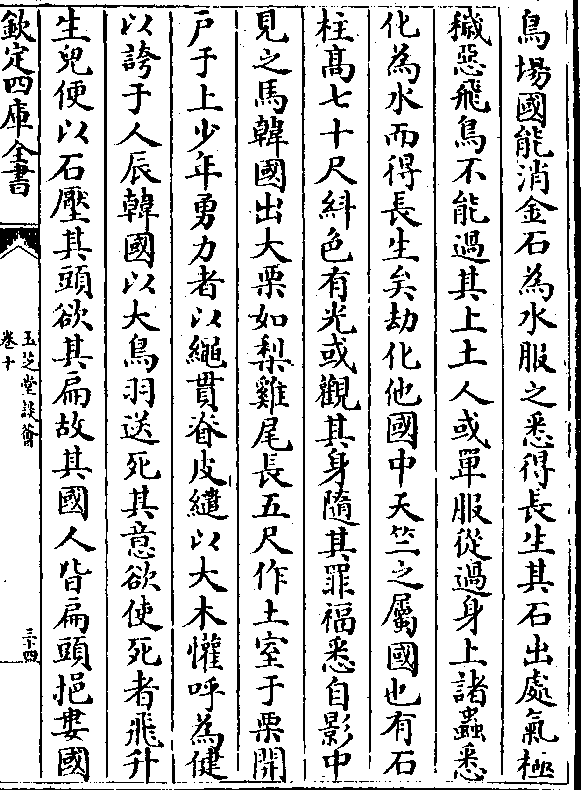 鳥場國能消金石為水服之悉得長生其石出處氣極
穢惡飛鳥不能過其上土人或單服從過身上諸蟲悉
化為水而得長生矣劫化他國中天竺之屬國也有石
柱髙七十尺紺色有光或觀其身隨其罪福悉自影中
見之馬韓國出大栗如梨雞尾長五尺作土室于栗開
户于上少年勇力者以繩貫脊皮縋以大木懽呼為健
以誇于人辰韓國以大鳥羽送死其意欲使死者飛升
生兒便以石壓其頭欲其扁故其國人皆扁頭挹婁國
欽定四庫全書
玉芝堂談薈
卷十
三十四